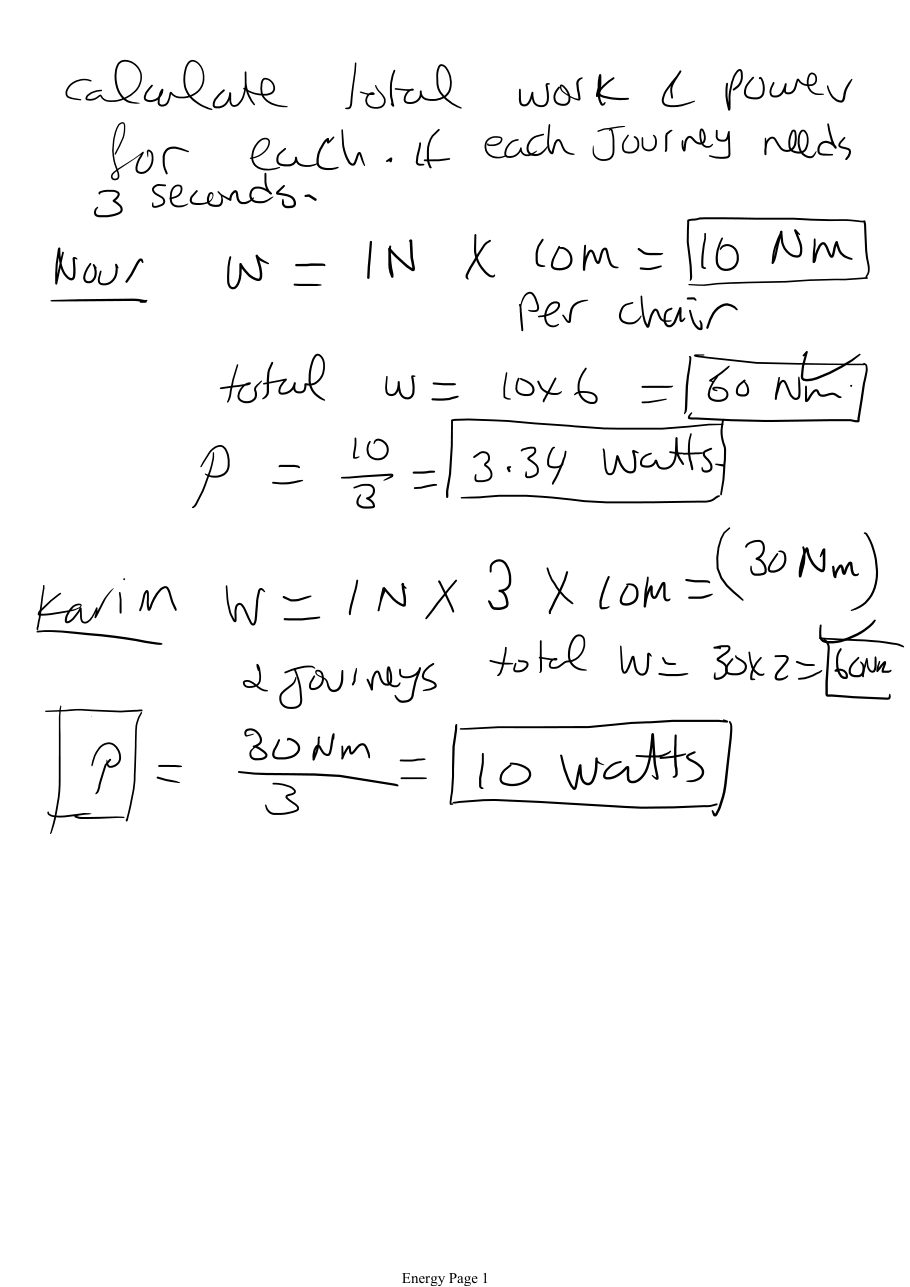 calculate total work & power
for each. if each Journey needs
3 seconds.
Nour W = 1N X 10m = 10 Nm
Per chair
total W = 10x6 = 60 Nm.
P = 10/3 = 3.34 Watts.
Karim W = 1N X 3 X 10m = (30 Nm)
2 Journeys total W = 30x2 = 60Nm
P = 30Nm/3 = 10 Watts
Energy Page 1